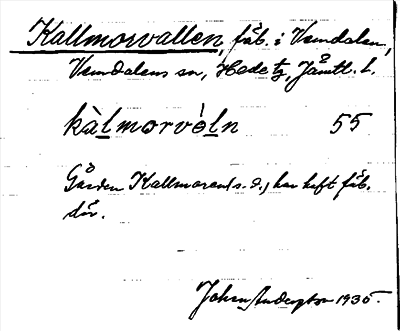 Kallmorvallen, fäb. i Vemdalen,
Vemdalens sn, Hede tg, Jämtl. l.
kàlmorvèln 55
Gården Kallmoren (s. d.) har haft fäb.
där.
Johan Anderson 1935.